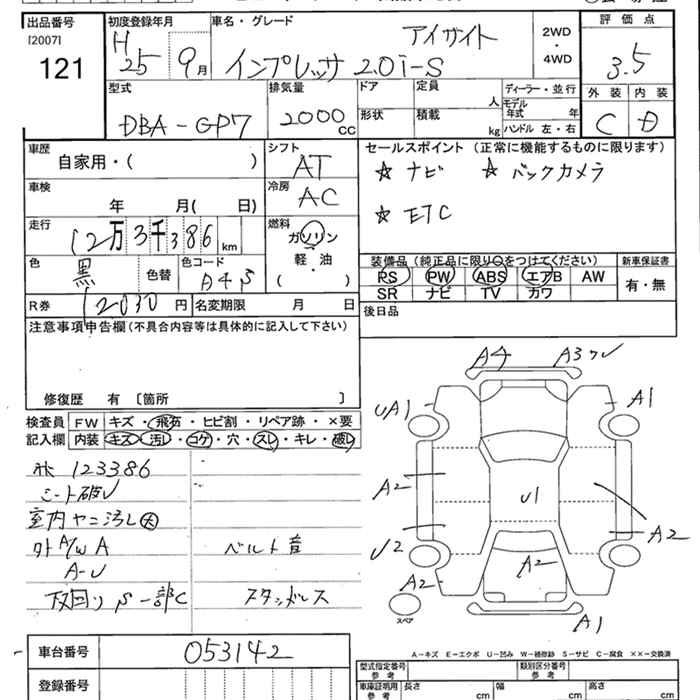 出品番号 初度登録年月 車名・グレード 評価点
[2007] H アイサイト 2WD
121 25 9月 インプレッサ 2.0i-S ・ 3.5
4WD
型式 排気量 ドア 定員 ディーラー・並行 外装 内装
DBA-GP7 2000 CC 人 モデル年式 年 C D
形状 積載 kg ハンドル 左・右
車歴 シフト セールスポイント (正常に機能するものに限ります)
自家用・( ) AT ☆ ナビ ☆ バックカメラ
車検 冷房
年 月( 日) AC ☆ ETC
走行 燃料
12万3千386 km ガソリン
色 色コード 軽・油 装備品(純正品に限り○をつけてください) 新車保証書
黒 色替 ( ) PS PW ABS エアB AW 有・無
SR ナビ TV カワ
R券 12030円 名変期限 月 日 後日品
注意事項申告欄(不具合内容等は具体的に記入して下さい)
修復歴 有 〔箇所 〕
検査員 FW キズ・飛石・ヒビ割・リペア跡・×要
記入欄 内装 キズ・汚レ・コゲ・穴・スレ・キレ・破レ
123386
シート破レ
室内ヤニ汚レ大
外A/W A ベルト音
A-U
下回りS一部C スタッドレス
A4 A3
UA1 A1
A2 U1
U2 A2
A2 A2
スペア A1
車台番号 053142
A-キズ E-エクボ U-凹み W-補修跡 S-サビ C-腐食 ××-交換済
登録番号 型式指定番号 参考 類別区分番号 参考
車庫証明用 参考 長さ cm 幅 cm 高さ cm